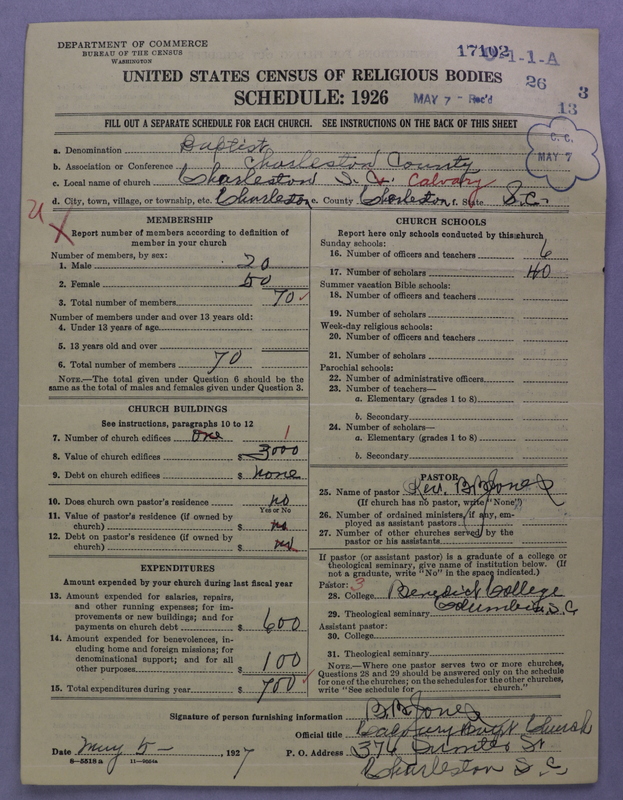 DEPARTMENT OF COMMERCE
BUREAU OF THE CENSUS
WASHINGTON
17102
1-1-A
26
3
13
UNITED STATES CENSUS OF RELIGIOUS BODIES
SCHEDULE: 1926
MAY 7 - Rec'd
FILL OUT A SEPARATE SCHEDULE FOR EACH CHURCH. SEE INSTRUCTIONS ON THE BACK OF THIS SHEET
C. C.
MAY 7
a. Denomination Baptist
b. Association or Conference Charleston County
c. Local name of church Charleston S. C. Calvary
d. City, town, village, or township, etc. Charleston e. County Charleston f. State S.C.
MEMBERSHIP
Report number of members according to definition of member in your church
Number of members, by sex:
1. Male 20
2. Female 50
3. Total number of members 70
Number of members under and over 13 years old:
4. Under 13 years of age
5. 13 years old and over
6. Total number of members 70
NOTE.—The total given under Question 6 should be the same as the total of males and females given under Question 3.
CHURCH BUILDINGS
See instructions, paragraphs 10 to 12
7. Number of church edifices one 1
8. Value of church edifices $ 3000
9. Debt on church edifices $ none
10. Does church own pastor's residence no
Yes or No
11. Value of pastor's residence (if owned by church) $ no
12. Debt on pastor's residence (if owned by church) $ no
EXPENDITURES
Amount expended by your church during last fiscal year
13. Amount expended for salaries, repairs, and other running expenses; for improvements or new buildings; and for payments on church debt $ 600
14. Amount expended for benevolences, including home and foreign missions; for denominational support; and for all other purposes $ 100
15. Total expenditures during year $ 700
CHURCH SCHOOLS
Report here only schools conducted by this church
Sunday schools:
16. Number of officers and teachers 6
17. Number of scholars 40
Summer vacation Bible schools:
18. Number of officers and teachers
19. Number of scholars
Week-day religious schools:
20. Number of officers and teachers
21. Number of scholars
Parochial schools:
22. Number of administrative officers
23. Number of teachers—
a. Elementary (grades 1 to 8)
b. Secondary
24. Number of scholars—
a. Elementary (grades 1 to 8)
b. Secondary
PASTOR
25. Name of pastor Rev. B. B. Jones
(If church has no pastor, write "None")
26. Number of ordained ministers, if any, employed as assistant pastors
27. Number of other churches served by the pastor or his assistants
If pastor (or assistant pastor) is a graduate of a college or theological seminary, give name of institution below. (If not a graduate, write "No" in the space indicated.)
Pastor: 3
28. College Benedict College
29. Theological seminary Columbia, S.C
Assistant pastor:
30. College
31. Theological seminary
NOTE.—Where one pastor serves two or more churches, Questions 28 and 29 should be answered only on the schedule for one of the churches; on the schedules for the other churches, write "See schedule for church."
Signature of person furnishing information B. B. Jones
Official title Calvary Bapt Church
Date May 5 —, 1927 P. O. Address 376 St
Charleston S. C.
8—5518 a 11—9064a